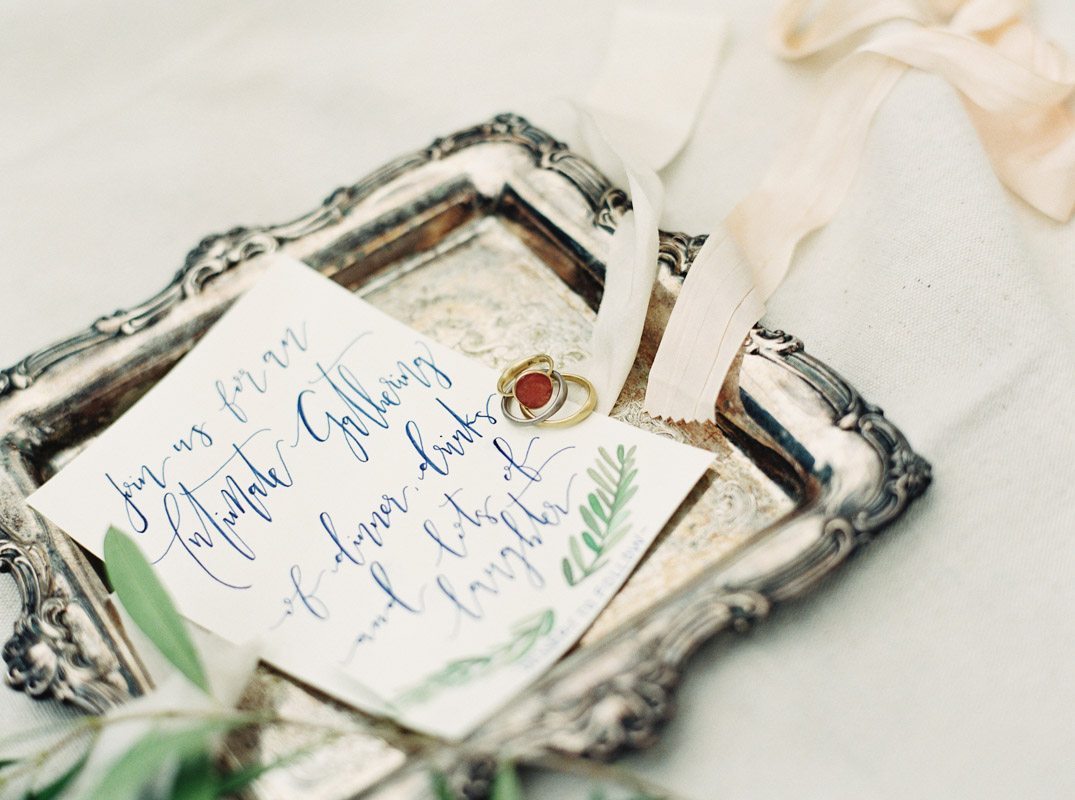 Join us for an
Intimate Gathering
of dinner, drinks
and lots of
laughter
TO FOLLOW